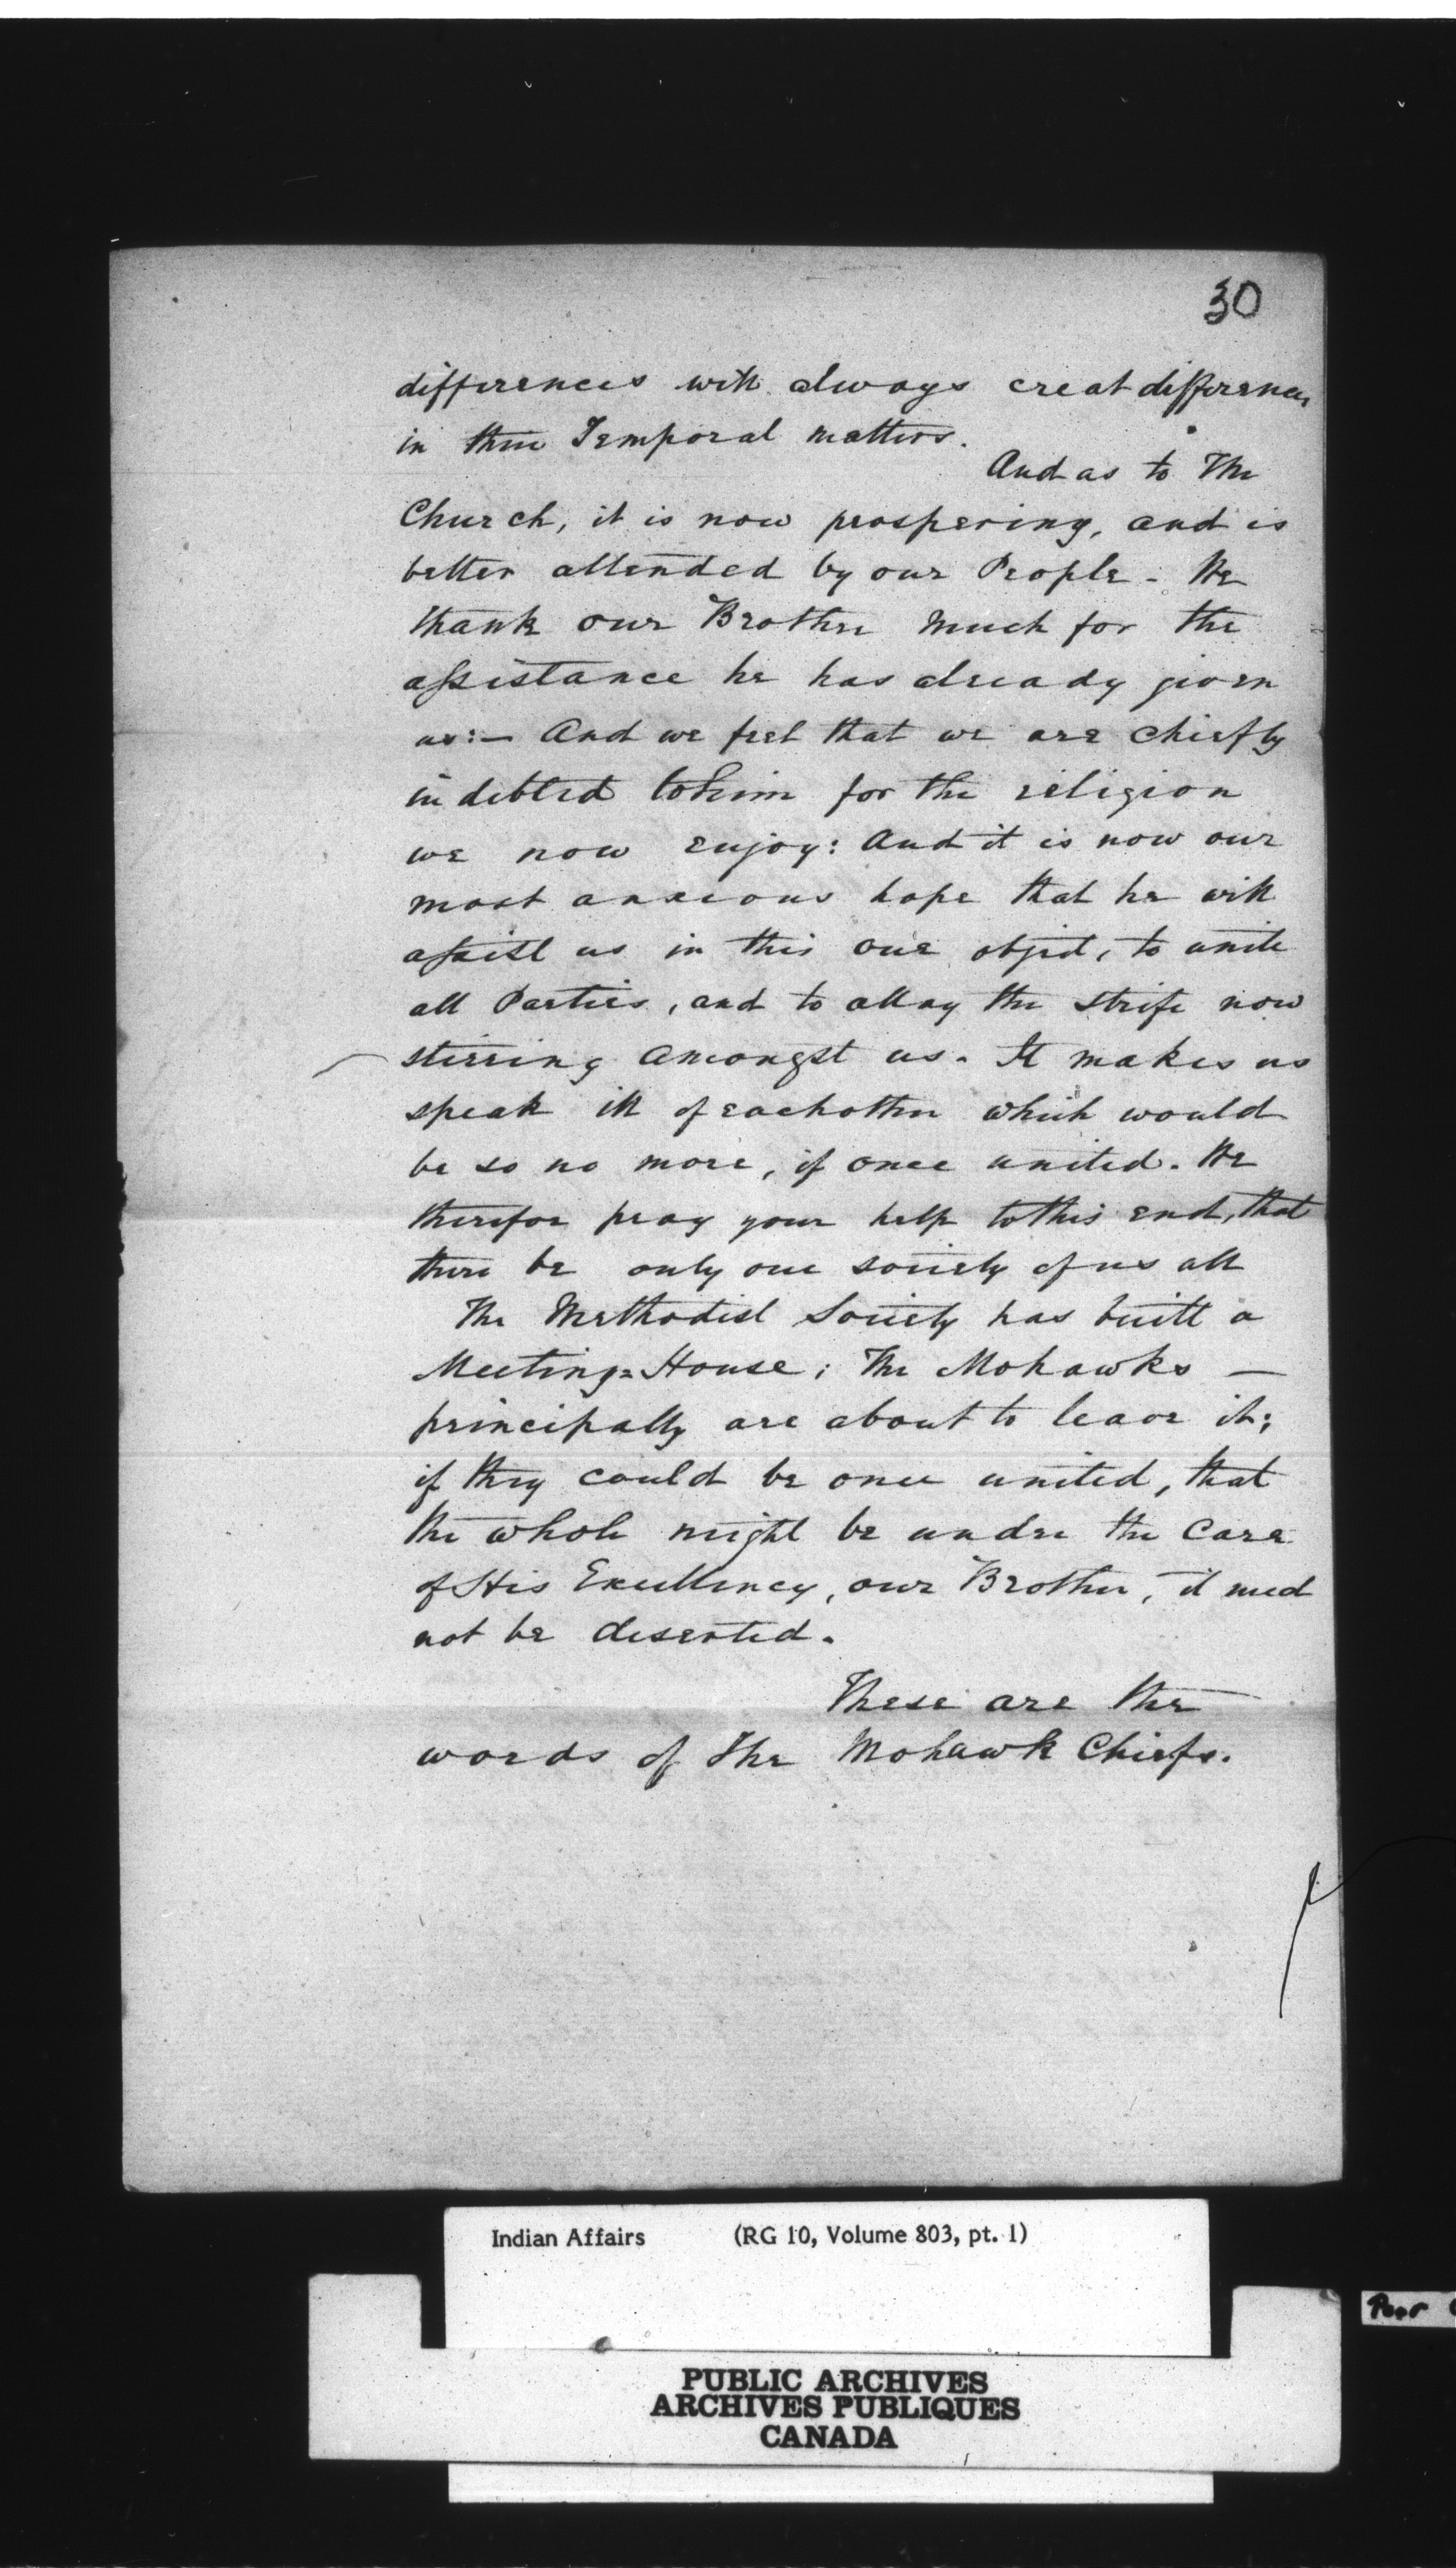 30
differences will always creat differences
in their Temporal matters.
And as to The
Church, it is now prospering, and is
better attended by our People. We
thank our Brother much for the
assistance he has already given
us:— And we feel that we are chiefly
indebted to him for the religion
we now enjoy: And it is now our
most anxious hope that he will
assist us in this one object, to unite
all Parties, and to allay the strife now
stirring amongst us. It makes us
speak ill of eachother which would
be so no more, if once united. We
therefor pray your help to this end, that
there be only one society of us all
The Methodist Society has built a
Meeting=House; The Mohawks —
principally are about to leave it;
if they could be once united, that
the whole might be under the Care
of His Excellency, our Brother, it need
not be deserted.
These are the
words of The Mohawk Chiefs.
Indian Affairs (RG 10, Volume 803, pt. 1)
Poor
PUBLIC ARCHIVES
ARCHIVES PUBLIQUES
CANADA